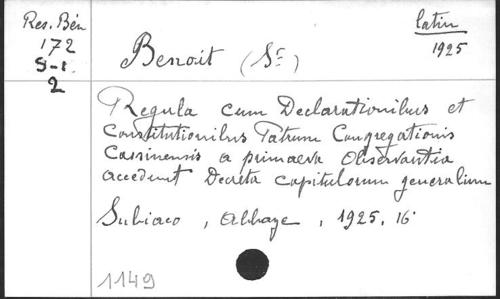 Res. Bén
172
S-1
2
latin
1925
Benoit (St)
Regula cum Declarationibus et
Constitutionibus Patrum Congregationis
Cassinensis a primaeva Observantia
accedunt Decreta capitulorum generalium
Subiaco, Abbaye, 1925, 16°
1149